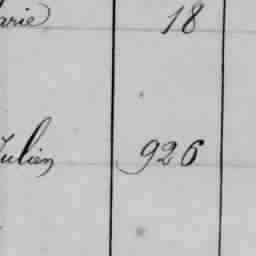 arie 18
Julien 926